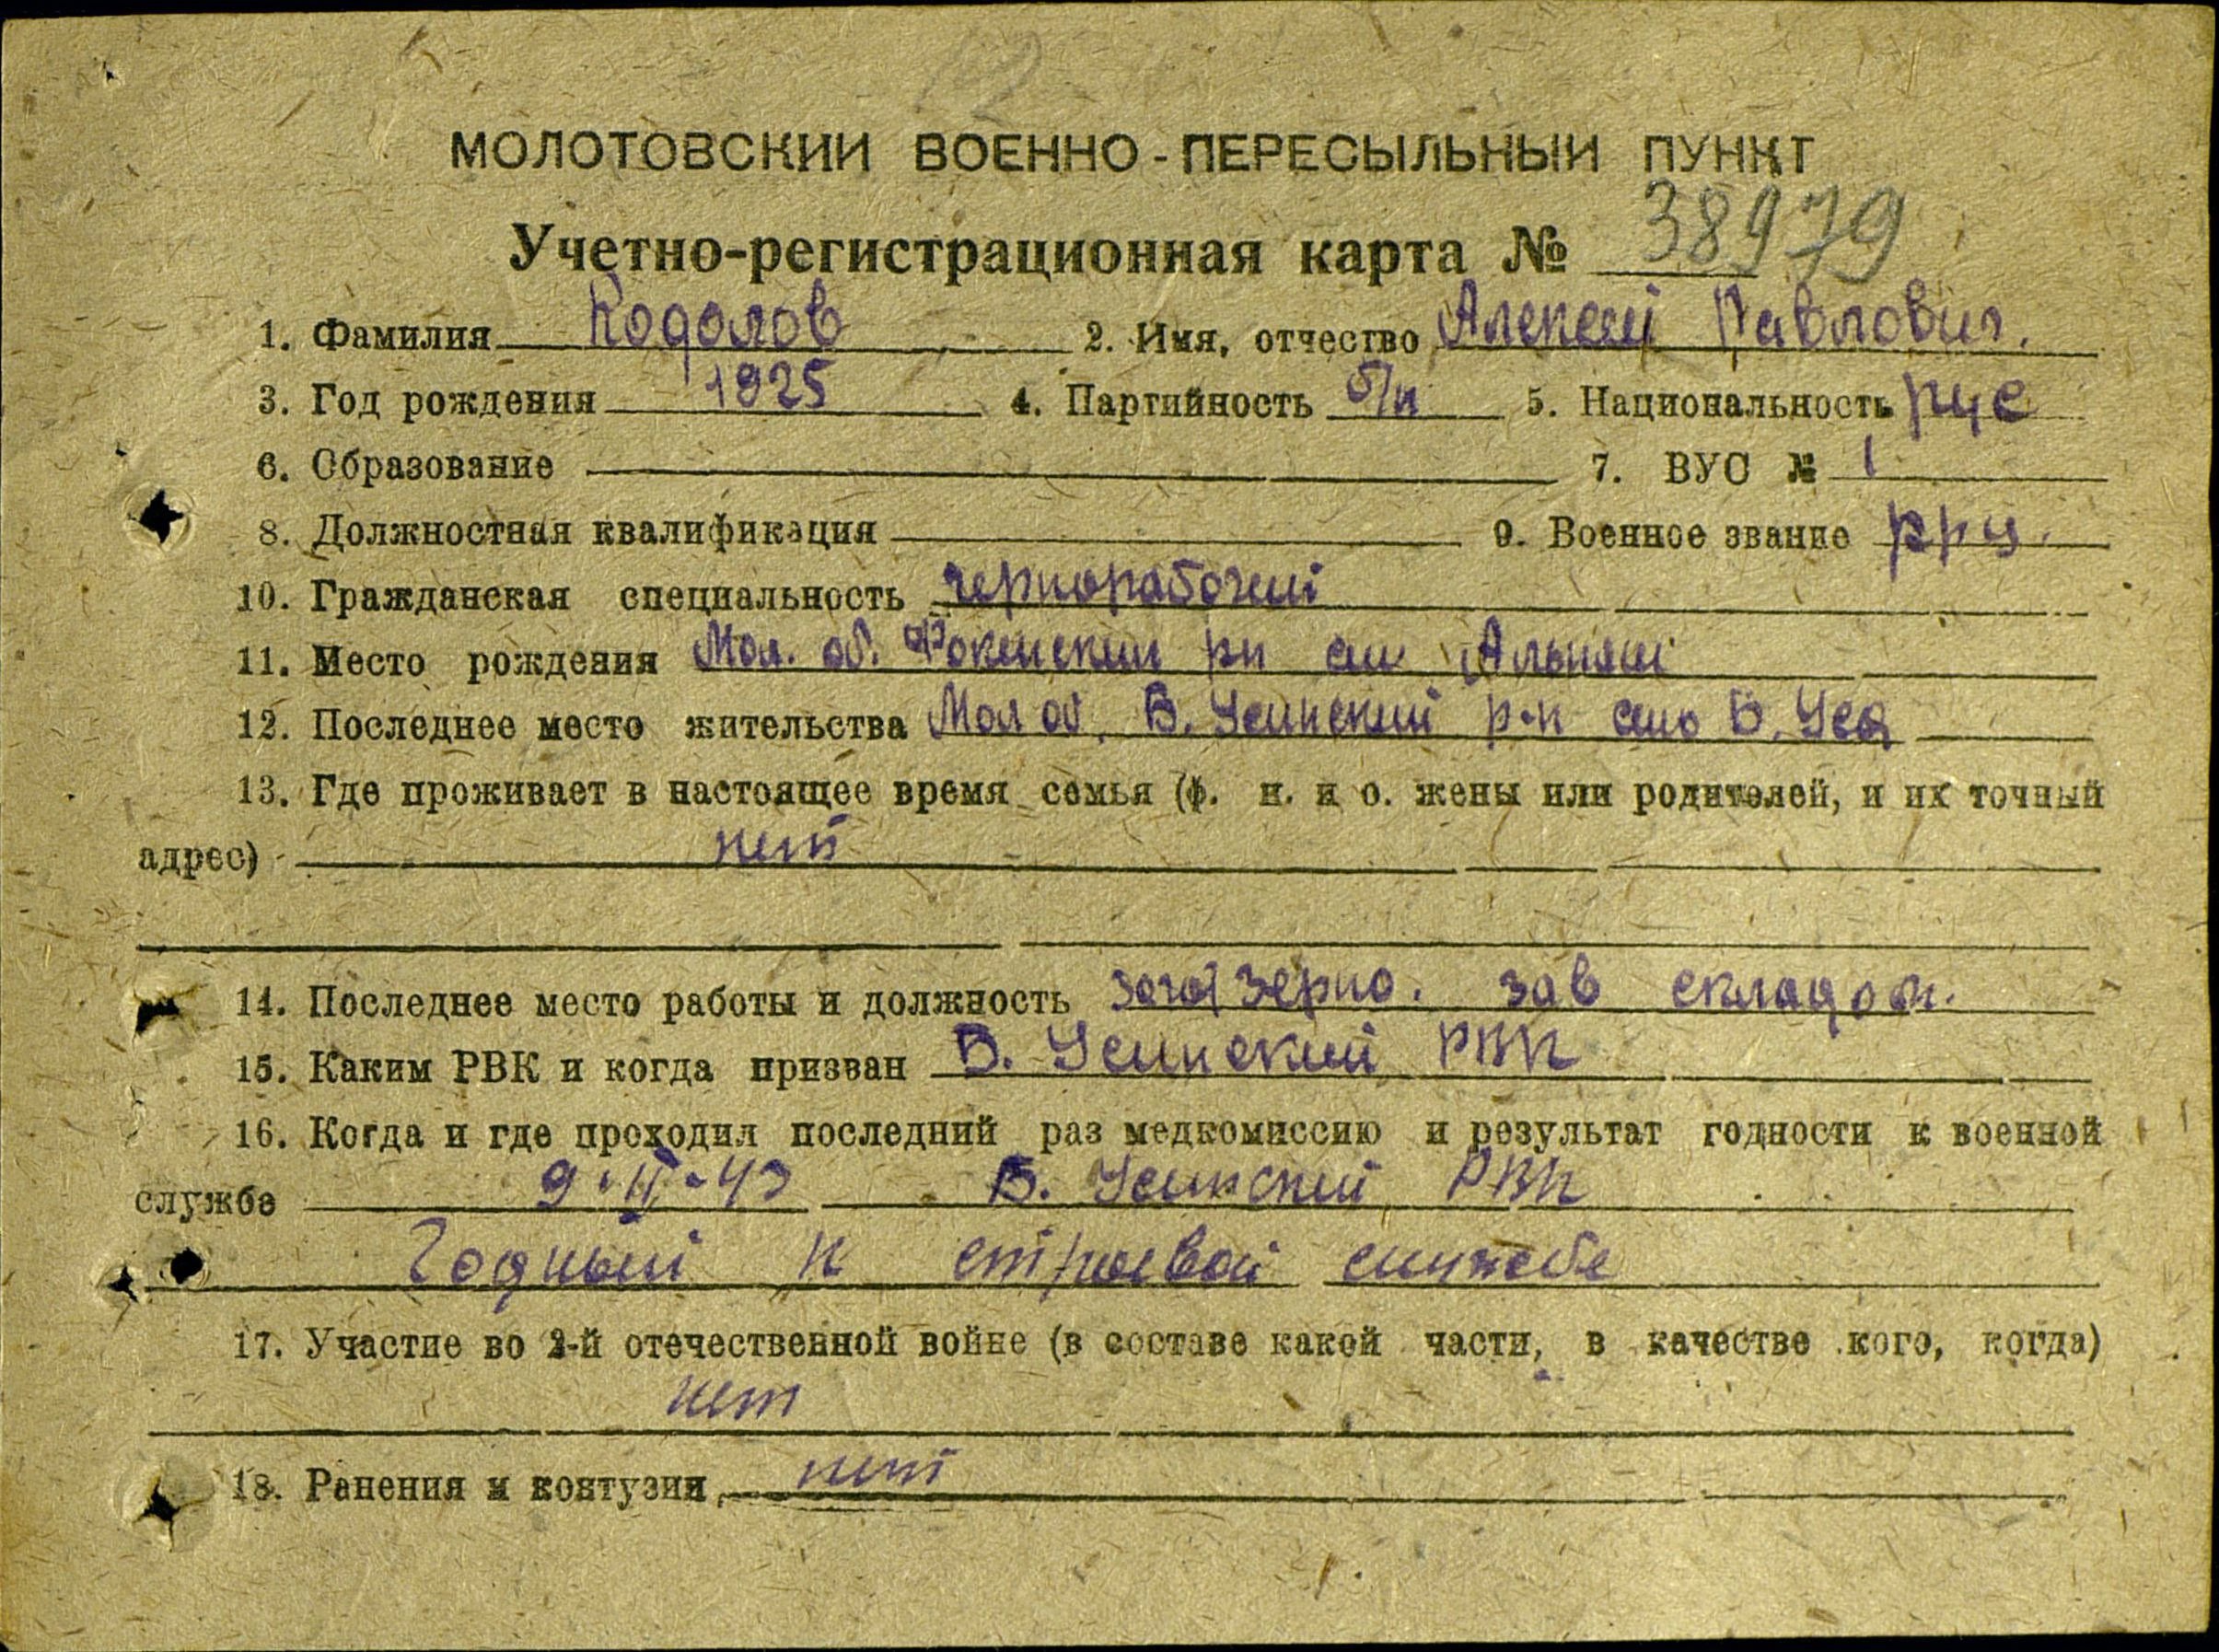 МОЛОТОВСКИЙ ВОЕННО-ПЕРЕСЫЛЬНЫЙ ПУНКТ
Учетно-регистрационная карта № 38979
1. Фамилия Кодолов 2. Имя, отчество Алексей Павлович.
3. Год рождения 1925 4. Партийность б/п 5. Национальность рус
6. Образование 7. ВУС № 1
8. Должностная квалификация 9. Военное звание
10. Гражданская специальность чернорабочий
11. Место рождения Мол. об. Фокинский рн Альняш
12. Последнее место жительства Мол об. Б. Усинский р-н село Б. Уса
13. Где проживает в настоящее время семья (ф. и. и о. жены или родителей, и их точный
адрес) нет
14. Последнее место работы и должность Заготзерно. зав складом.
15. Каким РВК и когда призван Б. Усинский РВК
16. Когда и где проходил последний раз медкомиссию и результат годности к военной
службе 9-II-43 Б. Усинский РВК
Годный к строевой службе
17. Участие во 2-й отечественной войне (в составе какой части, в качестве кого, когда)
нет
18. Ранения и контузии, нет